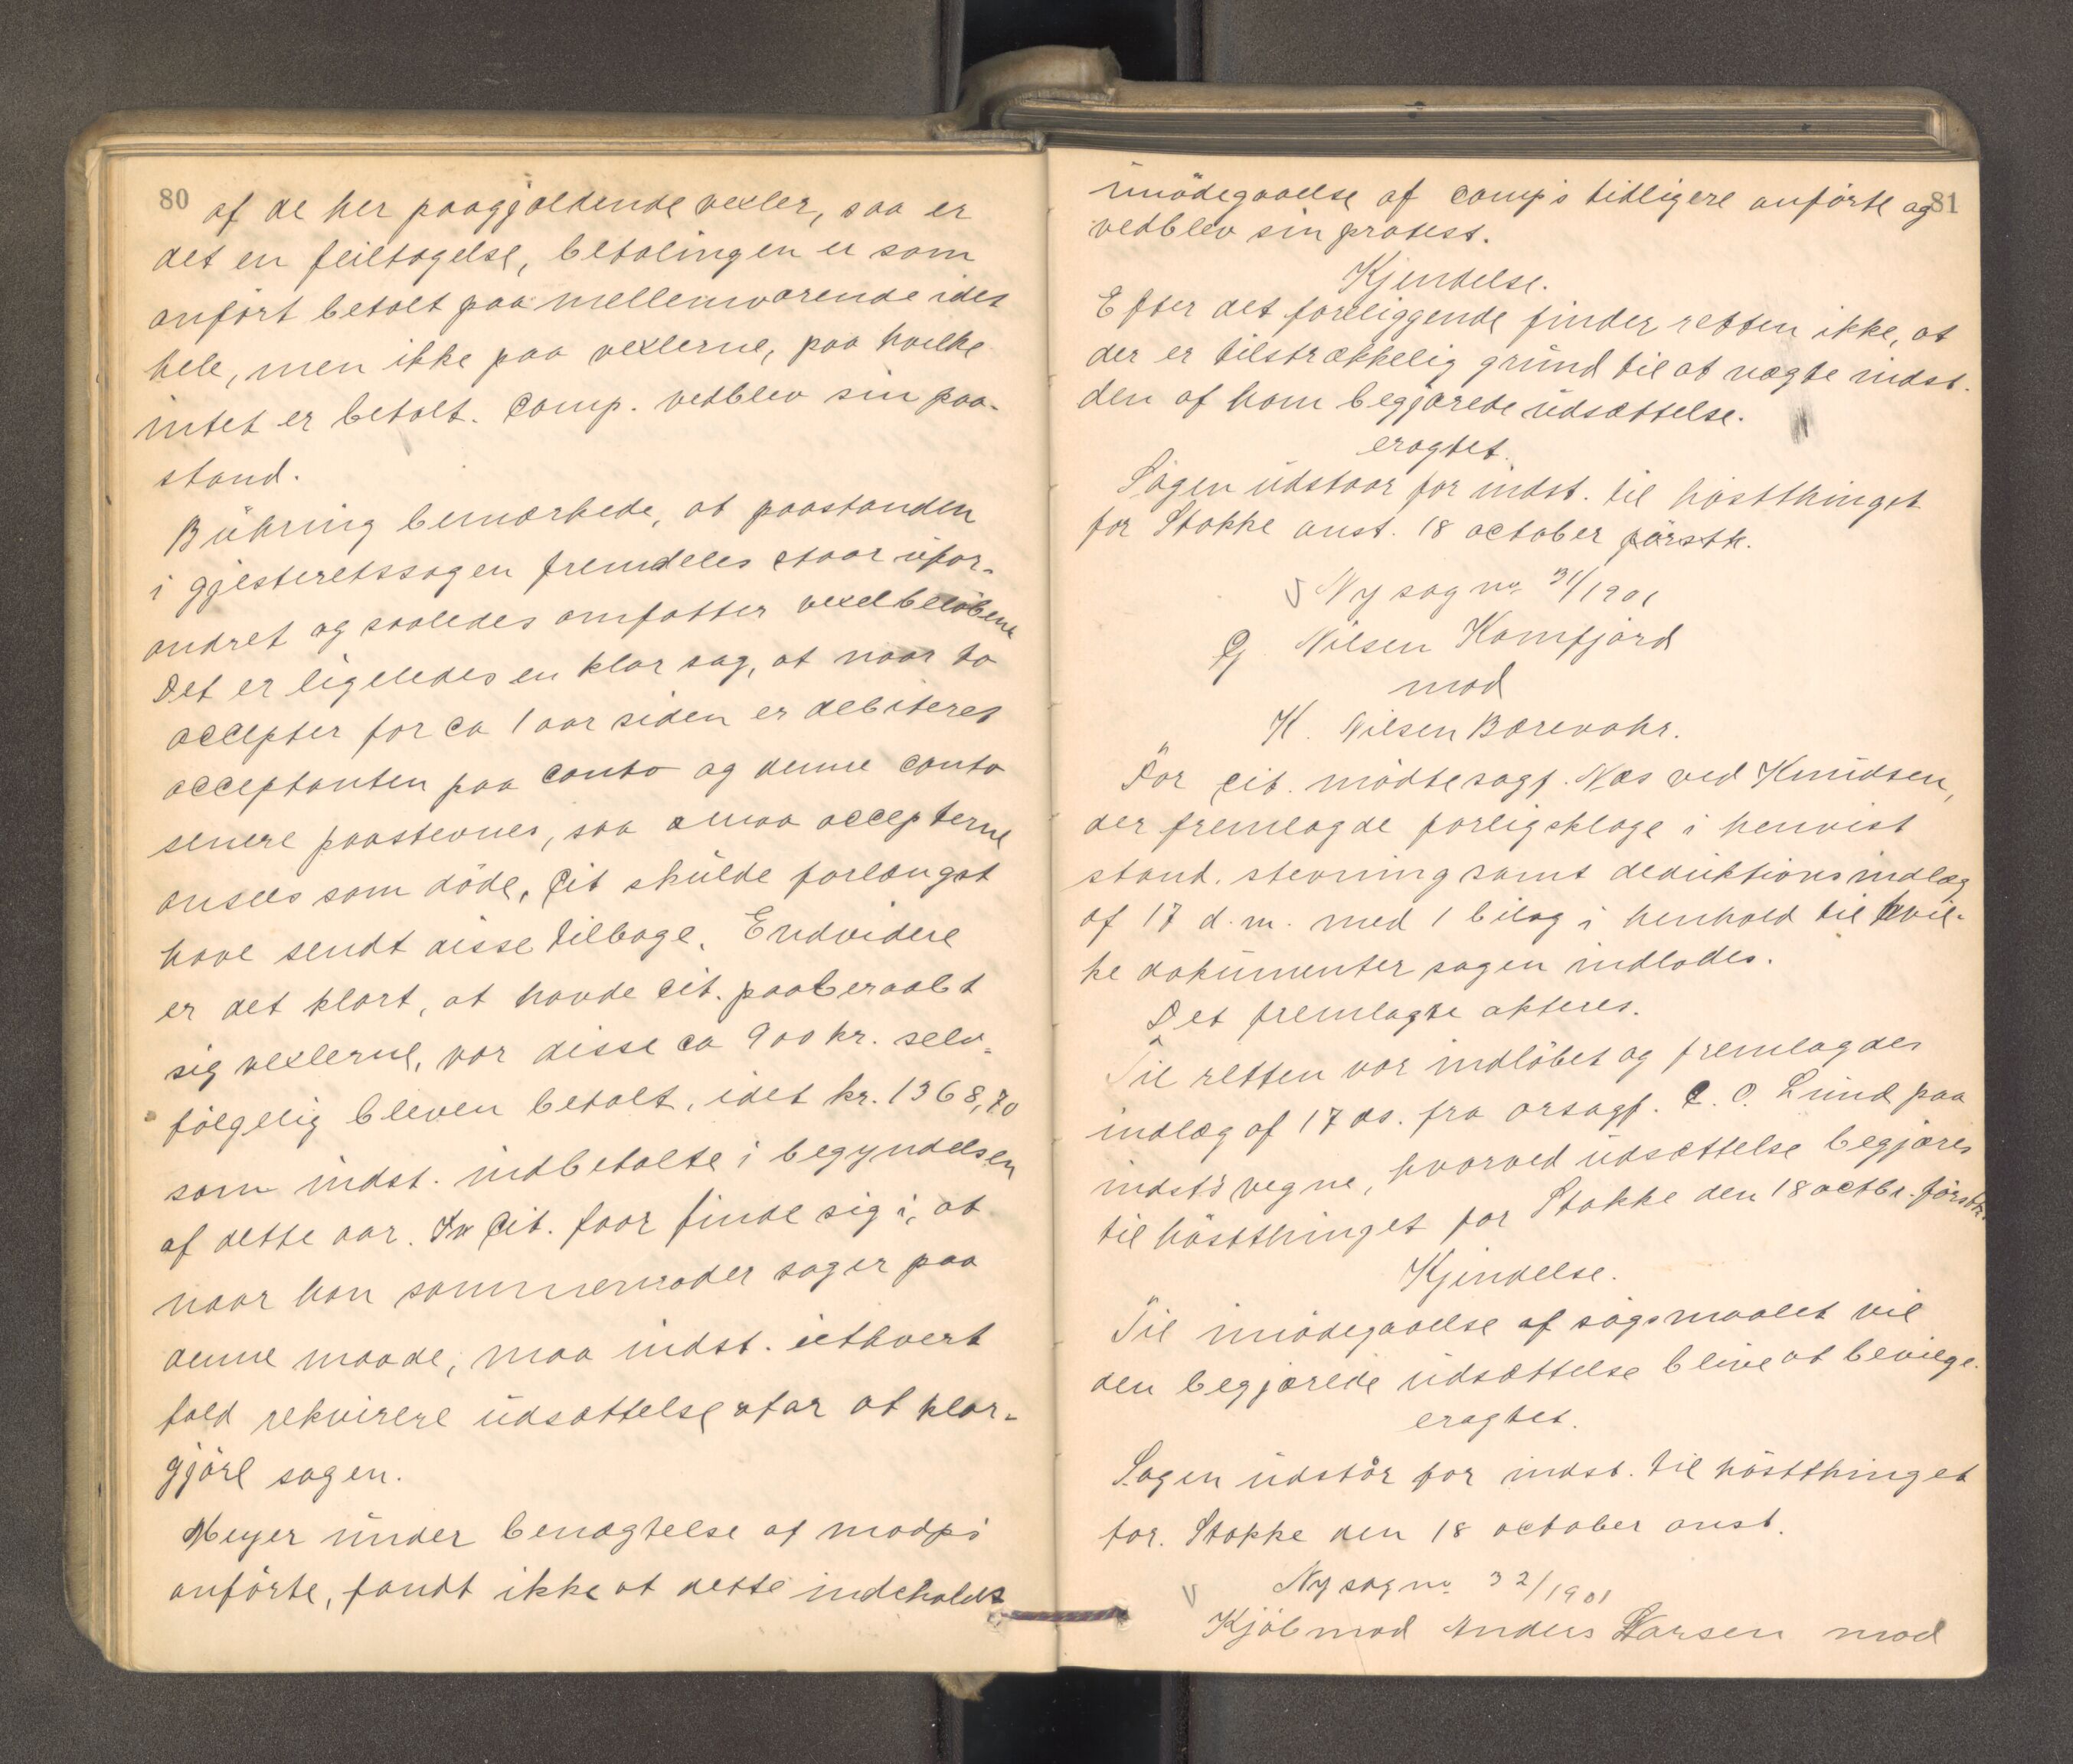 80
af de her paagjældende vexler, saa er
det en feiltagelse, betalingen er som
anført betalt paa mellemværende idet
hele, men ikke paa vexlerne, paa hvilke
intet er betalt. Comp. vedblev sin paa-
stand.
Bühring bemærkede, at paastanden
i gjesteretssagen fremdeles staar ufor-
andret og saaledes omfatter vexelbeløbene
Det er ligeledes en klar sag, at naar to
accepter for ca 1 aar siden er debiteret
acceptanten paa conto og denne conto
senere paastevnes, saa maa accepterne
ansees som døde, Cit skulde forlængst
have sendt disse tilbage. Endvidere
er det klart, at havde Cit. paaberaabt
sig vexlerne, var disse ca 900 kr. selv-
følgelig bleven betalt, idet kr. 1368,70
som indst. indbetalte i begyndelsen
af dette aar. Cit. faar finde sig i, at
naar han sammenroder sager paa
denne maade, maa indst. iethvert
fald rekvirere udsættelse for at klar-
gjøre sagen.
Meyer under benægtelse af modp's
anførte, fandt ikke at dette indeholdt
81
imødegaaelse af comp's tidligere anførte og
vedblev sin protest.
Kjendelse.
Efter det foreliggende finder retten ikke, at
der er tilstrækkelig grund til at nægte indst.
den af ham begjærede udsættelse.
eragtet.
Sagen udstaar for indst. til høstthinget
for Stokke anst. 18 october førstk.
Ny sag no 31/1901
G. Nilsen Kamfjord
mod
K. Nilsen Barevahr.
For Cit. mødte sagf. Næs ved Knudsen,
der fremlagde forligsklage i henvist
stand. stevning samt deduktionsindlæg
af 17 d.m. med 1 bilag i henhold til hvil-
ke dokumenter sagen indlodes.
Det fremlagte akteres.
Til retten var indløbet og fremlagdes
indlæg af 17 ds. fra orsagf. C. O. Lund paa
indst's vegne, hvorved udsættelse begjæres
til høstthinget for Stokke den 18 octbr. førstk.
Kjendelse.
Til imødegaaelse af søgsmaalet vil
den begjærede udsættelse blive at bevilge.
eragtet.
Sagen udstår for indst. til høstthinget
for. Stokke den 18 october anst.
Ny sag no 32/1901
Kjøbmad Anders Larsen mod